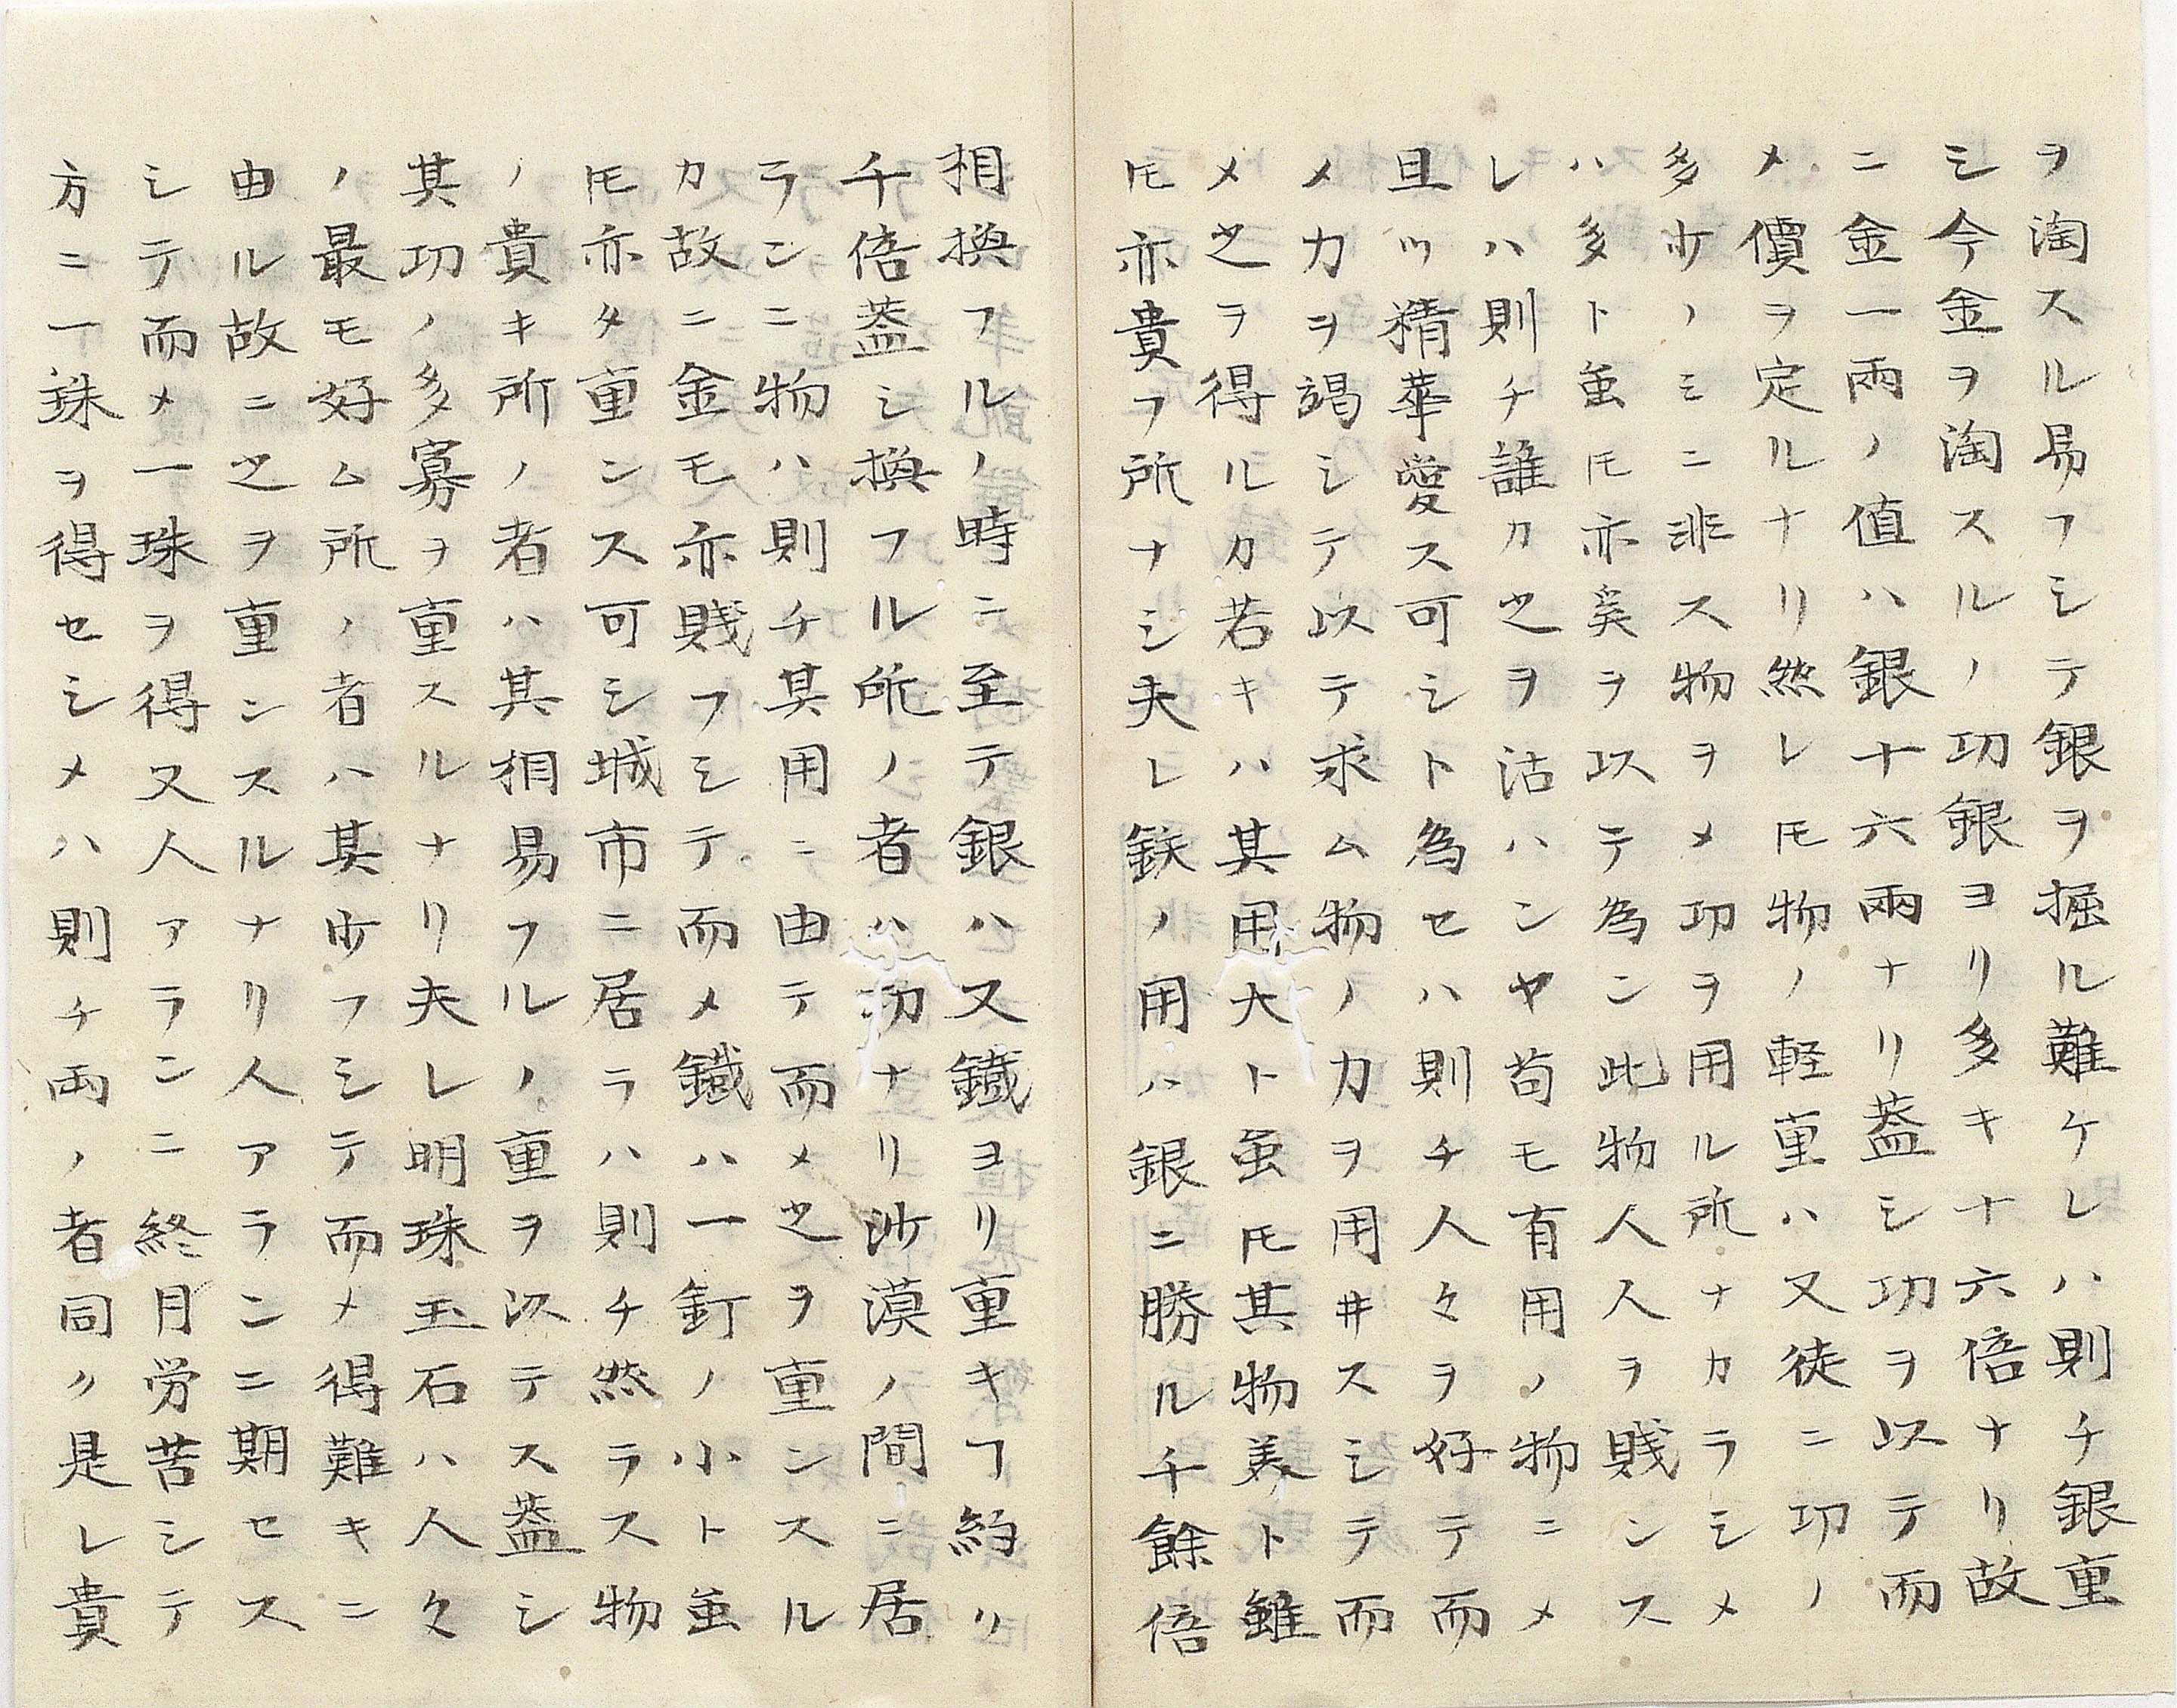 ヲ淘スル易フシテ銀ヲ掘ル難ケレハ則チ銀重
シ今金ヲ淘スルノ功銀ヨリ多キナ十六倍ナリ故
ニ金一兩ノ値ハ銀十六兩ナリ葢シ功ヲ以テ而
メ價ヲ定ルナリ然レ𪜈物ノ軽重ハ又徒ニ功ノ
多少ノミニ非ス物ヲメ功ヲ用ル所ナカラシメ
ハ多ト虽𪜈亦奚ヲ以テ為ン此物人人ヲ賎ンス
レハ則チ誰カ之ヲ沽ハンヤ苟モ有用ノ物ニメ
且ツ精華愛ス可シト為セハ則チ人々ヲ好テ而
メカヲ竭シテ以テ求ム物ノカヲ用井スシテ而
メ之ヲ得ルカ若キハ其用大ト虽𪜈其物美ト雖
𪜈亦貴フ所ナシ夫レ鉄ノ用ハ銀ニ勝ル千餘倍
相換フルノ時ニ至テ銀ハ又鐵ヨリ重キフ約リ
千倍葢シ換フル所ノ者ハ功ナリ沙漠ノ間ニ居
ランニ物ハ則チ其用ニ由テ而メ之ヲ重ンスル
カ故ニ金モ亦賎フシテ而メ鐵ハ一釘ノ小ト虽
𪜈亦タ重ンス可シ城市ニ居ラハ則チ然ラス物
ノ貴キ所ノ者ハ其相易フルノ重ヲ以テス葢シ
其功ノ多寡ヲ重スルナリ夫レ明珠玉石ハ人々
ノ最モ好ム所ノ者ハ其少フシテ而メ得難キニ
由ル故ニ之ヲ重ンスルナリ人アランニ期セス
シテ而メ一珠ヲ得又人アランニ終月労苦シテ
方ニ一珠ヲ得セシメハ則チ両ノ者同ク是レ貴